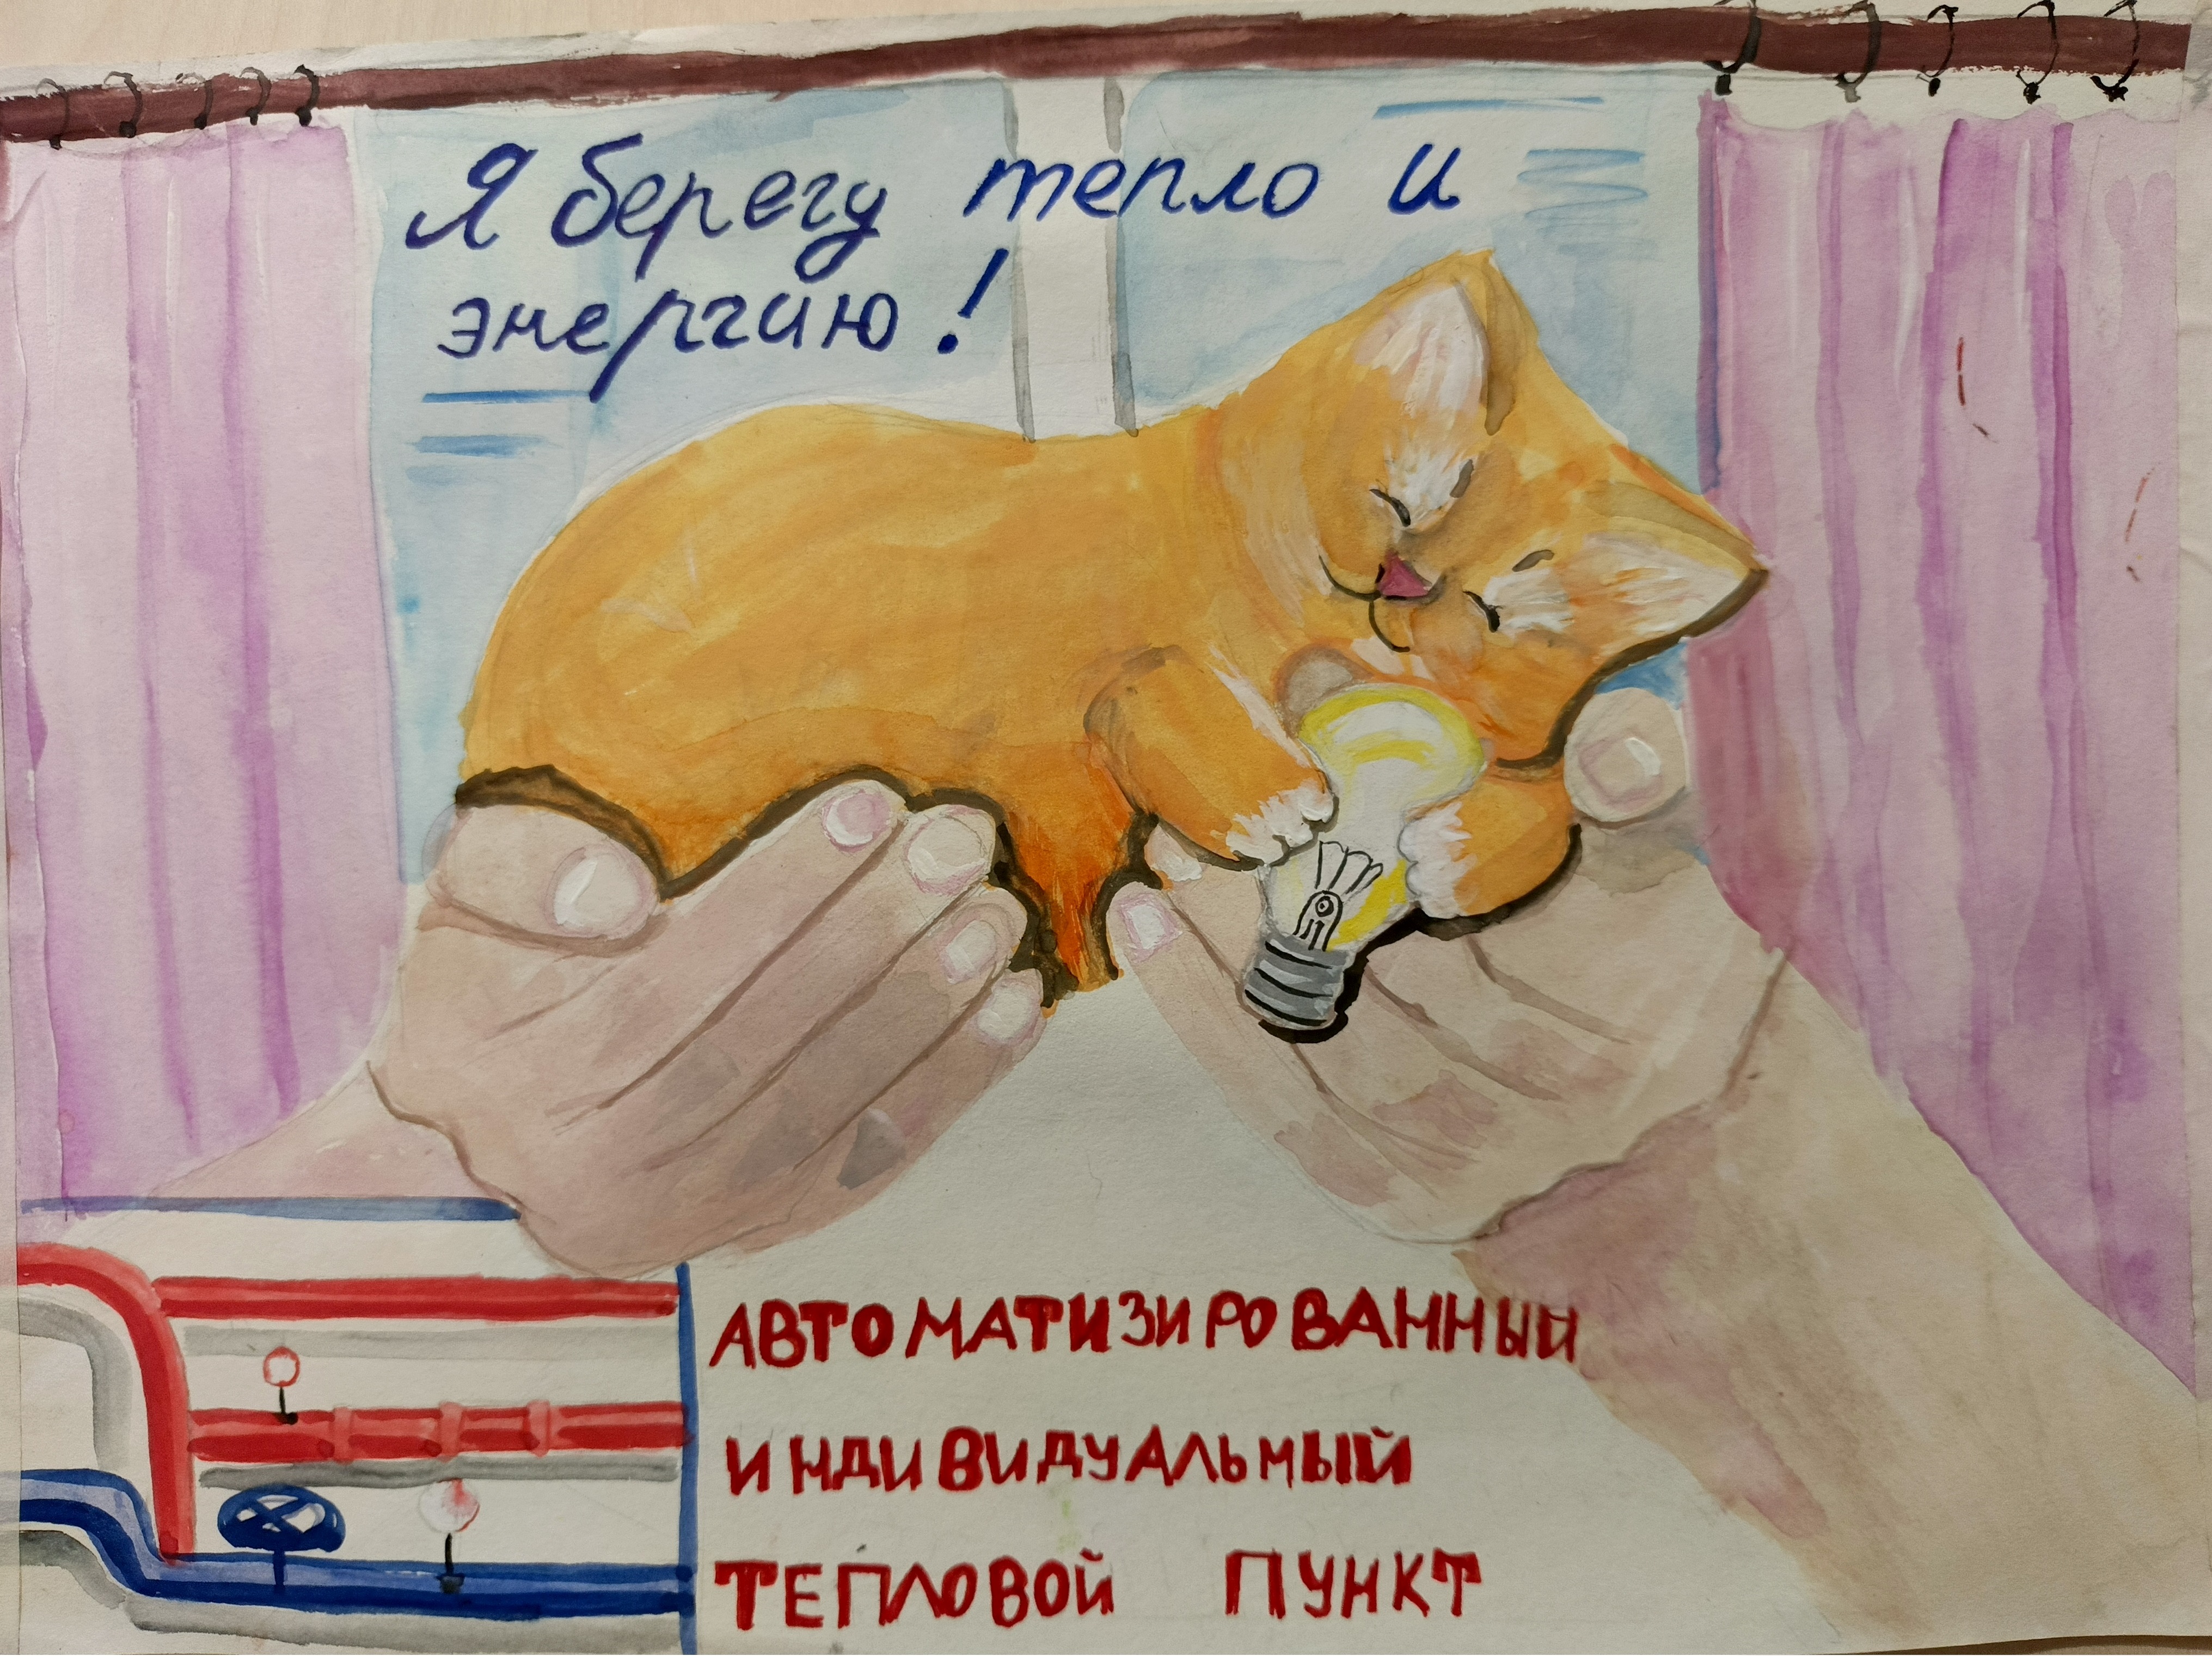 Я берегу тепло и
энергию!
АВТОМАТИЗИРОВАННЫЙ
ИНДИВИДУАЛЬНЫЙ
ТЕПЛОВОЙ ПУНКТ